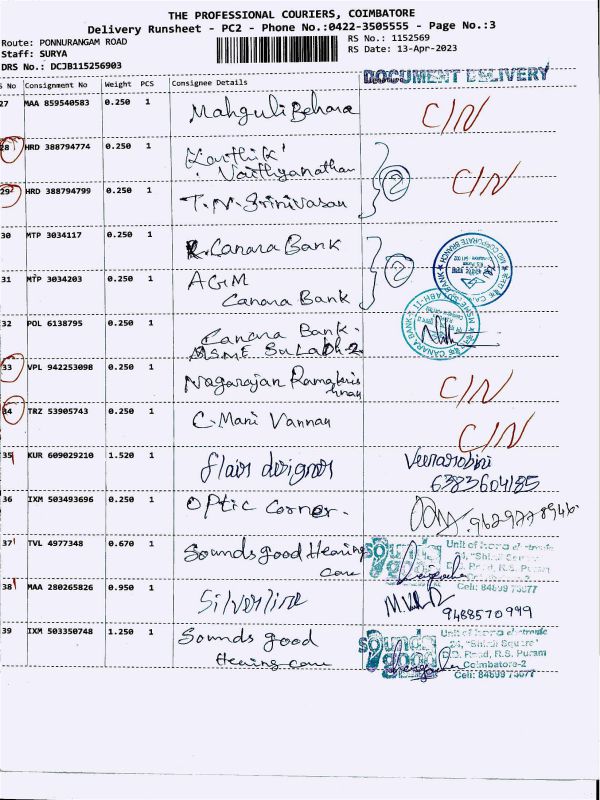 THE PROFESSIONAL COURIERS, COIMBATORE
Delivery Runsheet - PC2 - Phone No.:0422-3505555 - Page No.:3
Route: PONNURANGAM ROAD
RS No.: 1152569
Staff: SURYA
RS Date: 13-Apr-2023
DRS No.: DCJB115256903
S No Consignment No Weight PCS Consignee Details
DOCUMENT DELIVERY
27 MAA 859540583 0.250 1 Mahguli Behara C/N
28 HRD 388794774 0.250 1 Karthik
Vaithyanathan
2 C/N
29 HRD 388794799 0.250 1 T.N. Srinivasan
30 MTP 3034117 0.250 1 Canara Bank
2
31 MTP 3034203 0.250 1 AGM
Canara Bank
32 POL 6138795 0.250 1 Canara Bank.
MSME Sulabh-2
33 VPL 942253098 0.250 1 Nagarajan Ramakris
hnan
C/N
34 TRZ 53905743 0.250 1 C. Mani Vannan C/N
35 KUR 609029210 1.520 1 flair designer Veenarobini
6383604185
36 IXM 503493696 0.250 1 Optic Corner. 9629778946
37 TVL 4977348 0.670 1 Sounds good Hearing
care
sounds good
Unit of hora electronic
24, "Shirdi Square"
D.B. Road, R.S. Puram
Coimbatore-2
Cell: 84899 73077
38 MAA 280265826 0.950 1 Silverline 9488570999
39 IXM 503350748 1.250 1 Sounds good
Hearing care
sounds good
Unit of hora electronic
24, "Shirdi Square"
D.B. Road, R.S. Puram
Coimbatore-2
Cell: 84899 73077